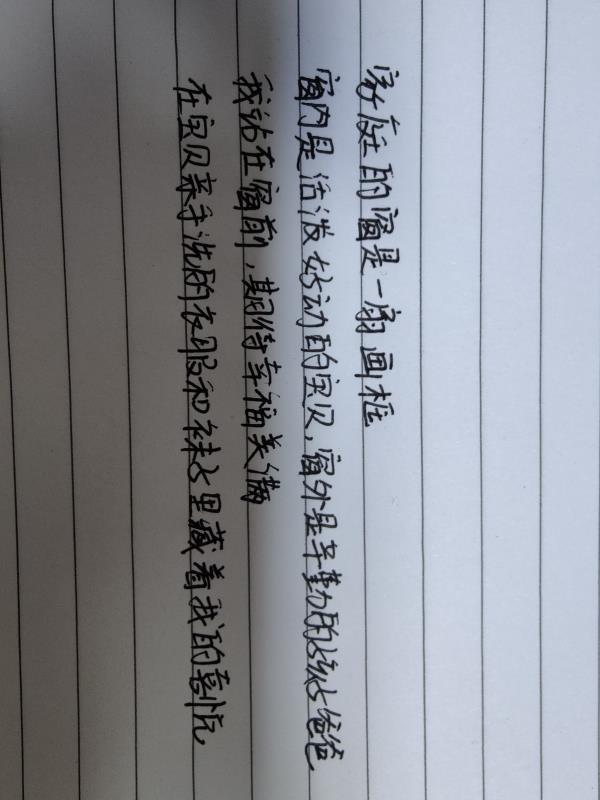 家庭的窗是一扇画框
窗内是活泼好动的宝贝，窗外是辛勤的孩子爸爸
我站在窗前，期待幸福美满
在宝贝亲手洗的衣服和袜子里藏着我的喜悦